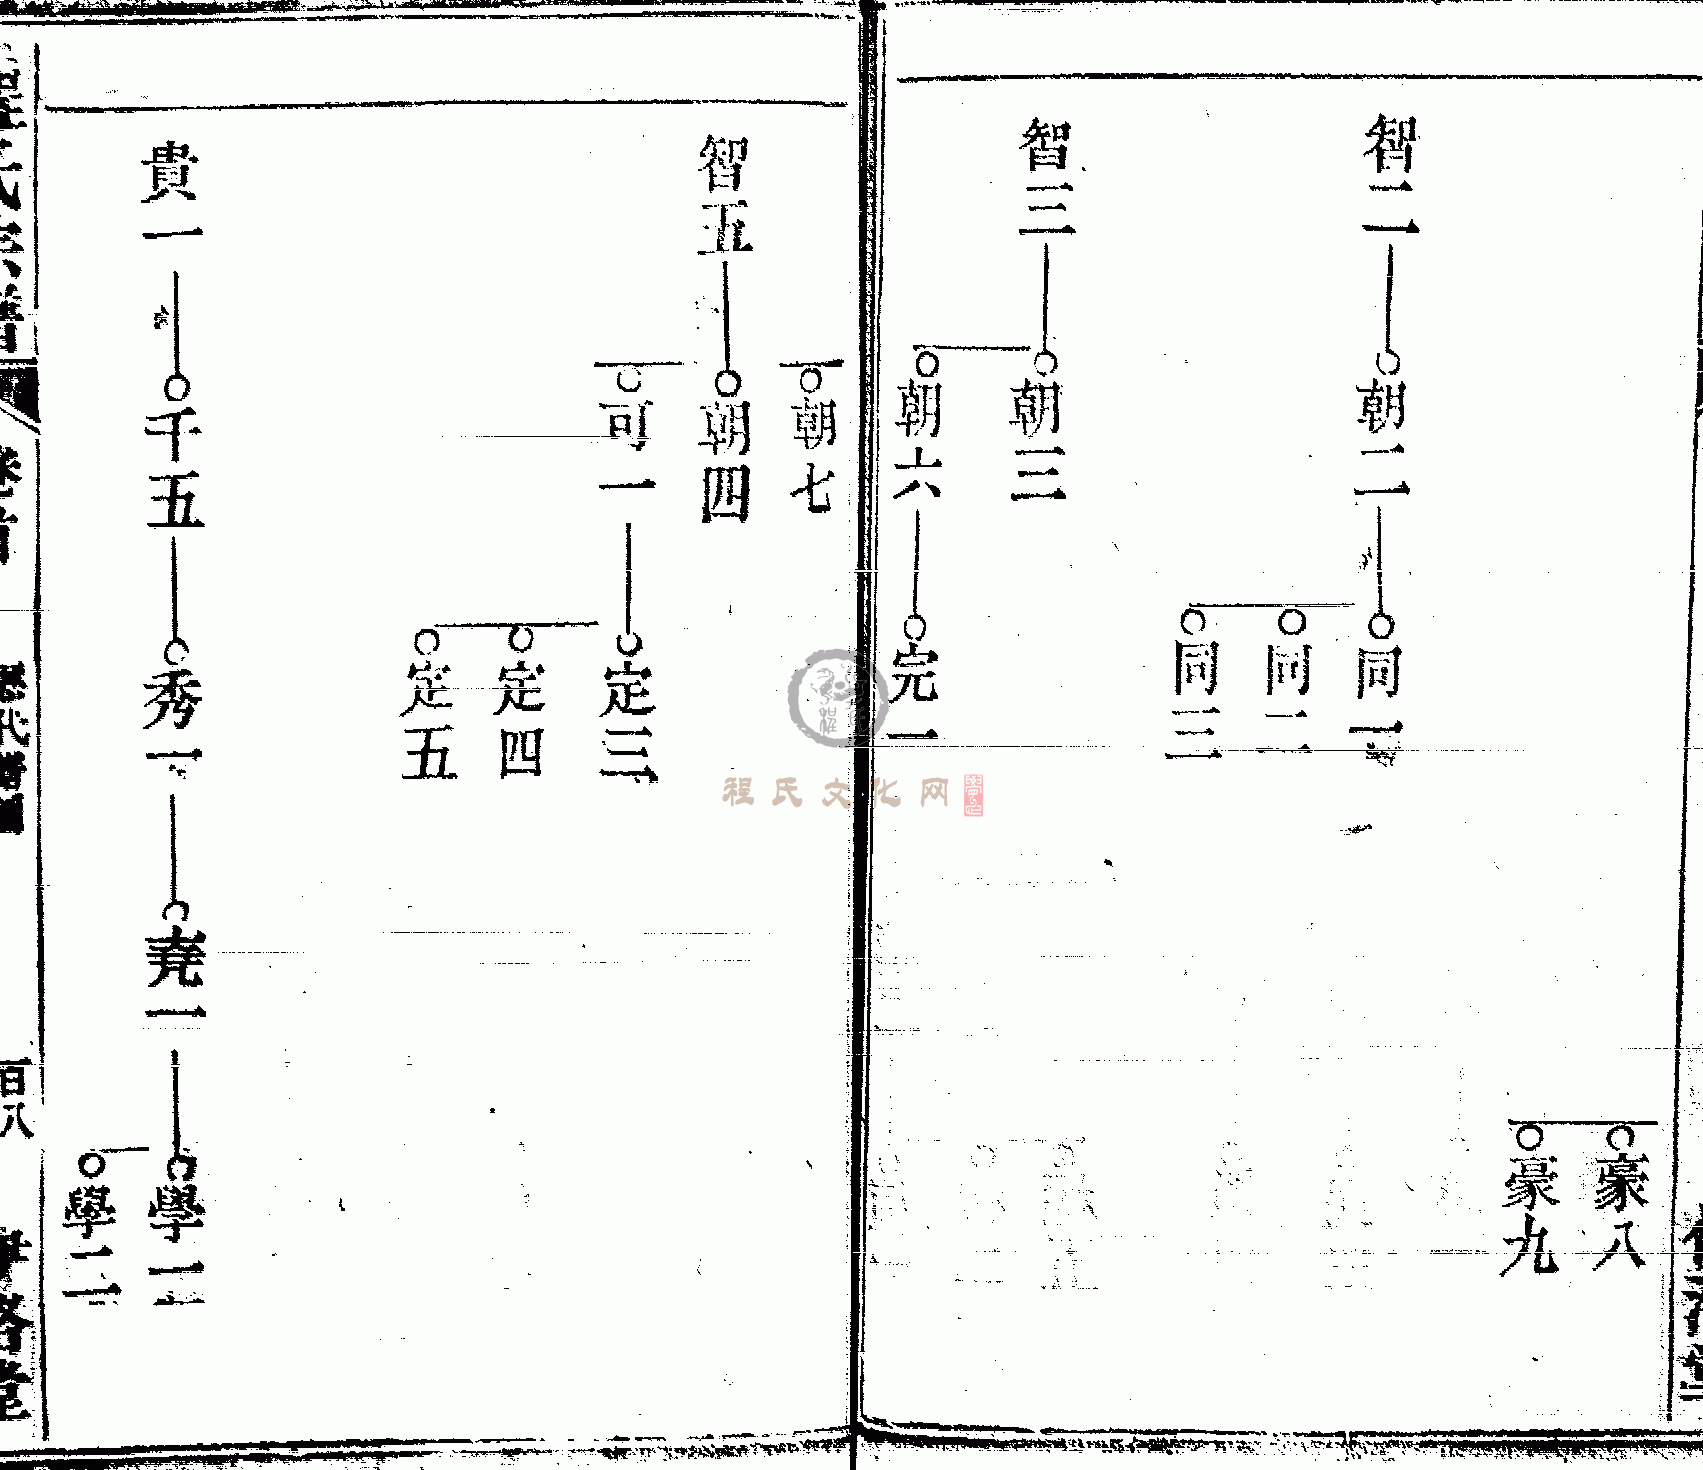 豪八
豪九
智二
朝二
同一
同二
同三
智三
朝三
朝六
完一
朝七
智五
朝四
可一
定三
定四
定五
貴一
千五
秀一
堯一
學一
學二
卷首
歷代舊圖
百八
程氏文化网